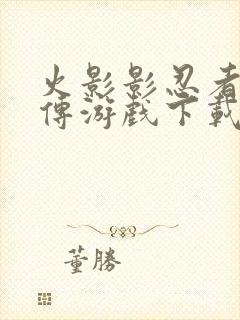 火影影忍者
傳游戲下載
董勝